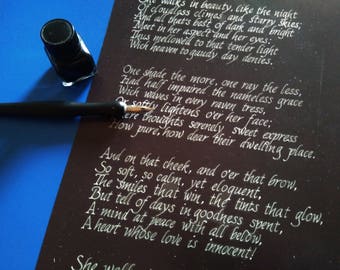 walks in beauty, like the night
Of cloudless climes and starry skies;
And all that's best of dark and bright
Meet in her aspect and her eyes:
Thus mellow'd to that tender light
Which heaven to gaudy day denies.
One shade the more, one ray the less,
Had half impaired the nameless grace
Which waves in every raven tress,
softly lightens o'er her face;
Where thoughts serenely sweet express
How pure, how dear their dwelling place.
And on that cheek, and o'er that brow,
So soft, so calm, yet eloquent,
The smiles that win, the tints that glow,
But tell of days in goodness spent,
A mind at peace with all below,
A heart whose love is innocent!
She walks